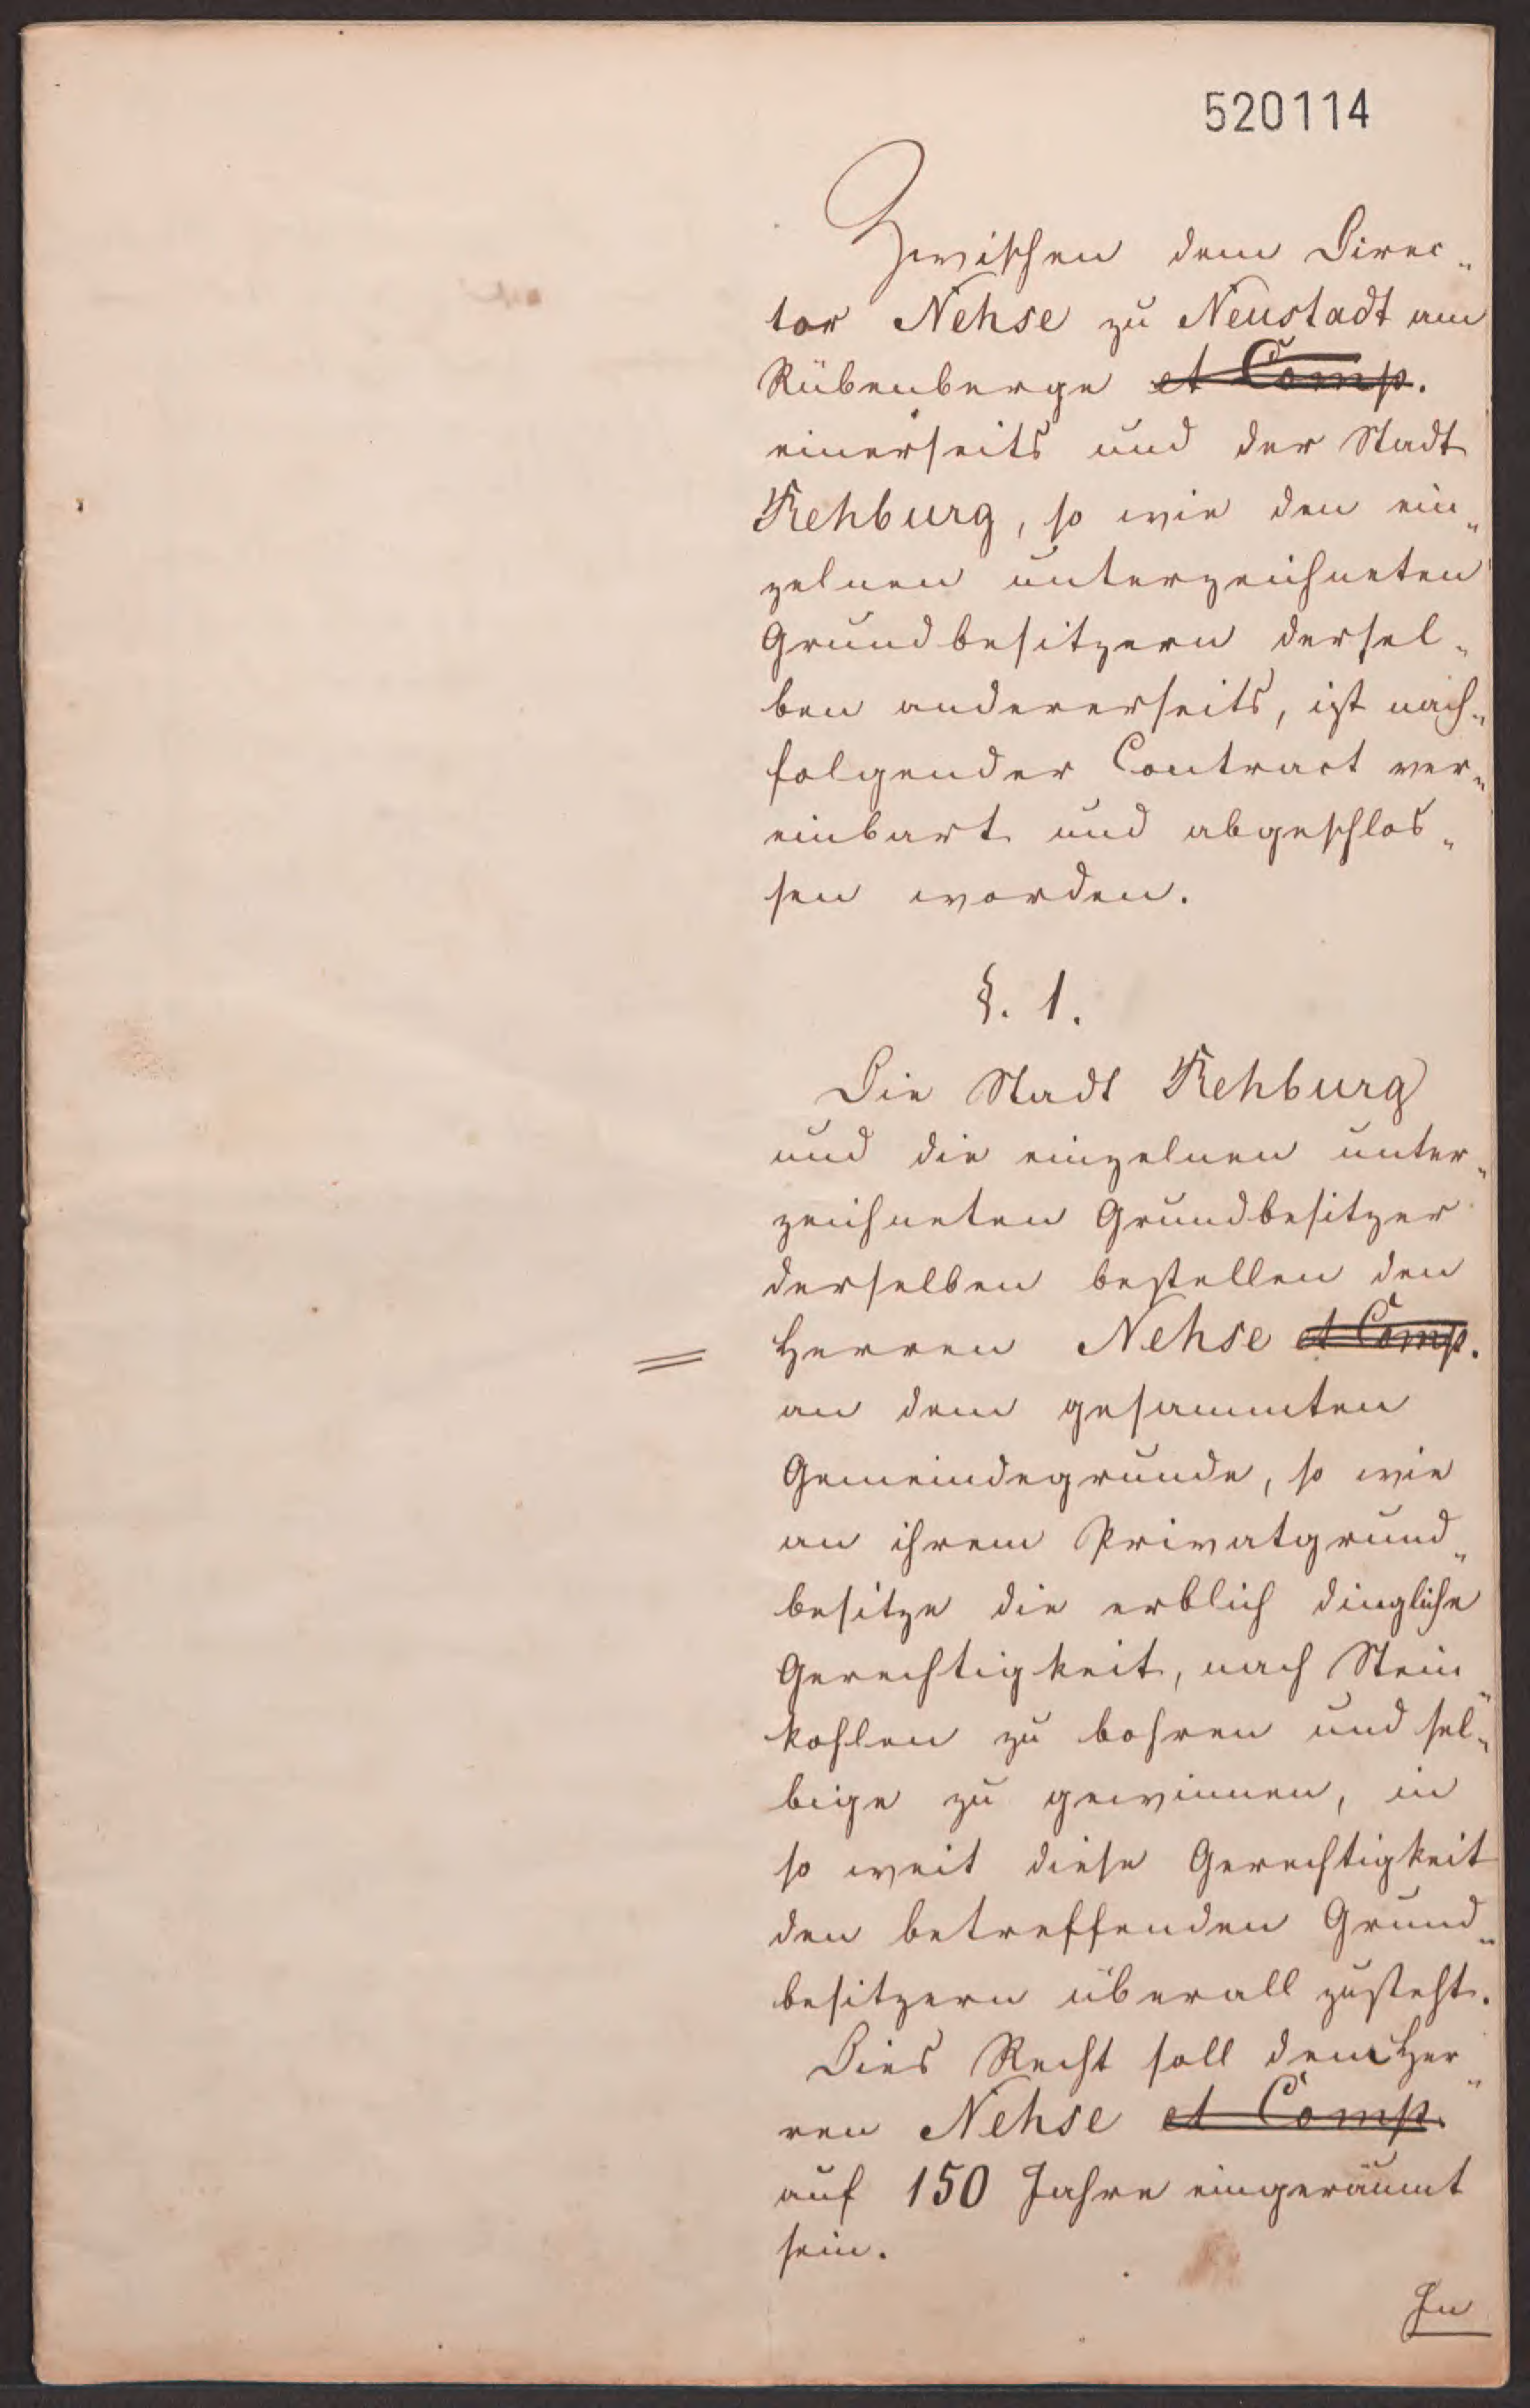 520114
Zwischen dem Direc„
tor Nehse zu Neustadt am
Rübenberge et Comp.
einerseits und der Stadt
Rehburg, so wie den ein„
zelnen unterzeichneten
Grundbesitzern dersel„
ben andererseits, ist nach„
folgender Contract ver„
einbart und abgeschlos„
sen worden.
§. 1.
Die Stadt Rehburg
und die einzelnen unter„
zeichneten Grundbesitzer
derselben bestellen den
Herren Nehse et Comp.
an dem gesammten
Gemeindegrunde, so wie
an ihrem Privatgrund„
besitze die erblich dingliche
Gerechtigkeit, nach Stein„
kohlen zu bohren und sel„
bige zu gewinnen, in
so weit diese Gerechtigkeit
den betreffenden Grund„
besitzern überall zusteht.
Dies Recht soll dem Her„
ren Nehse et Comp.
auf 150 Jahre eingeräumt
sein.
In